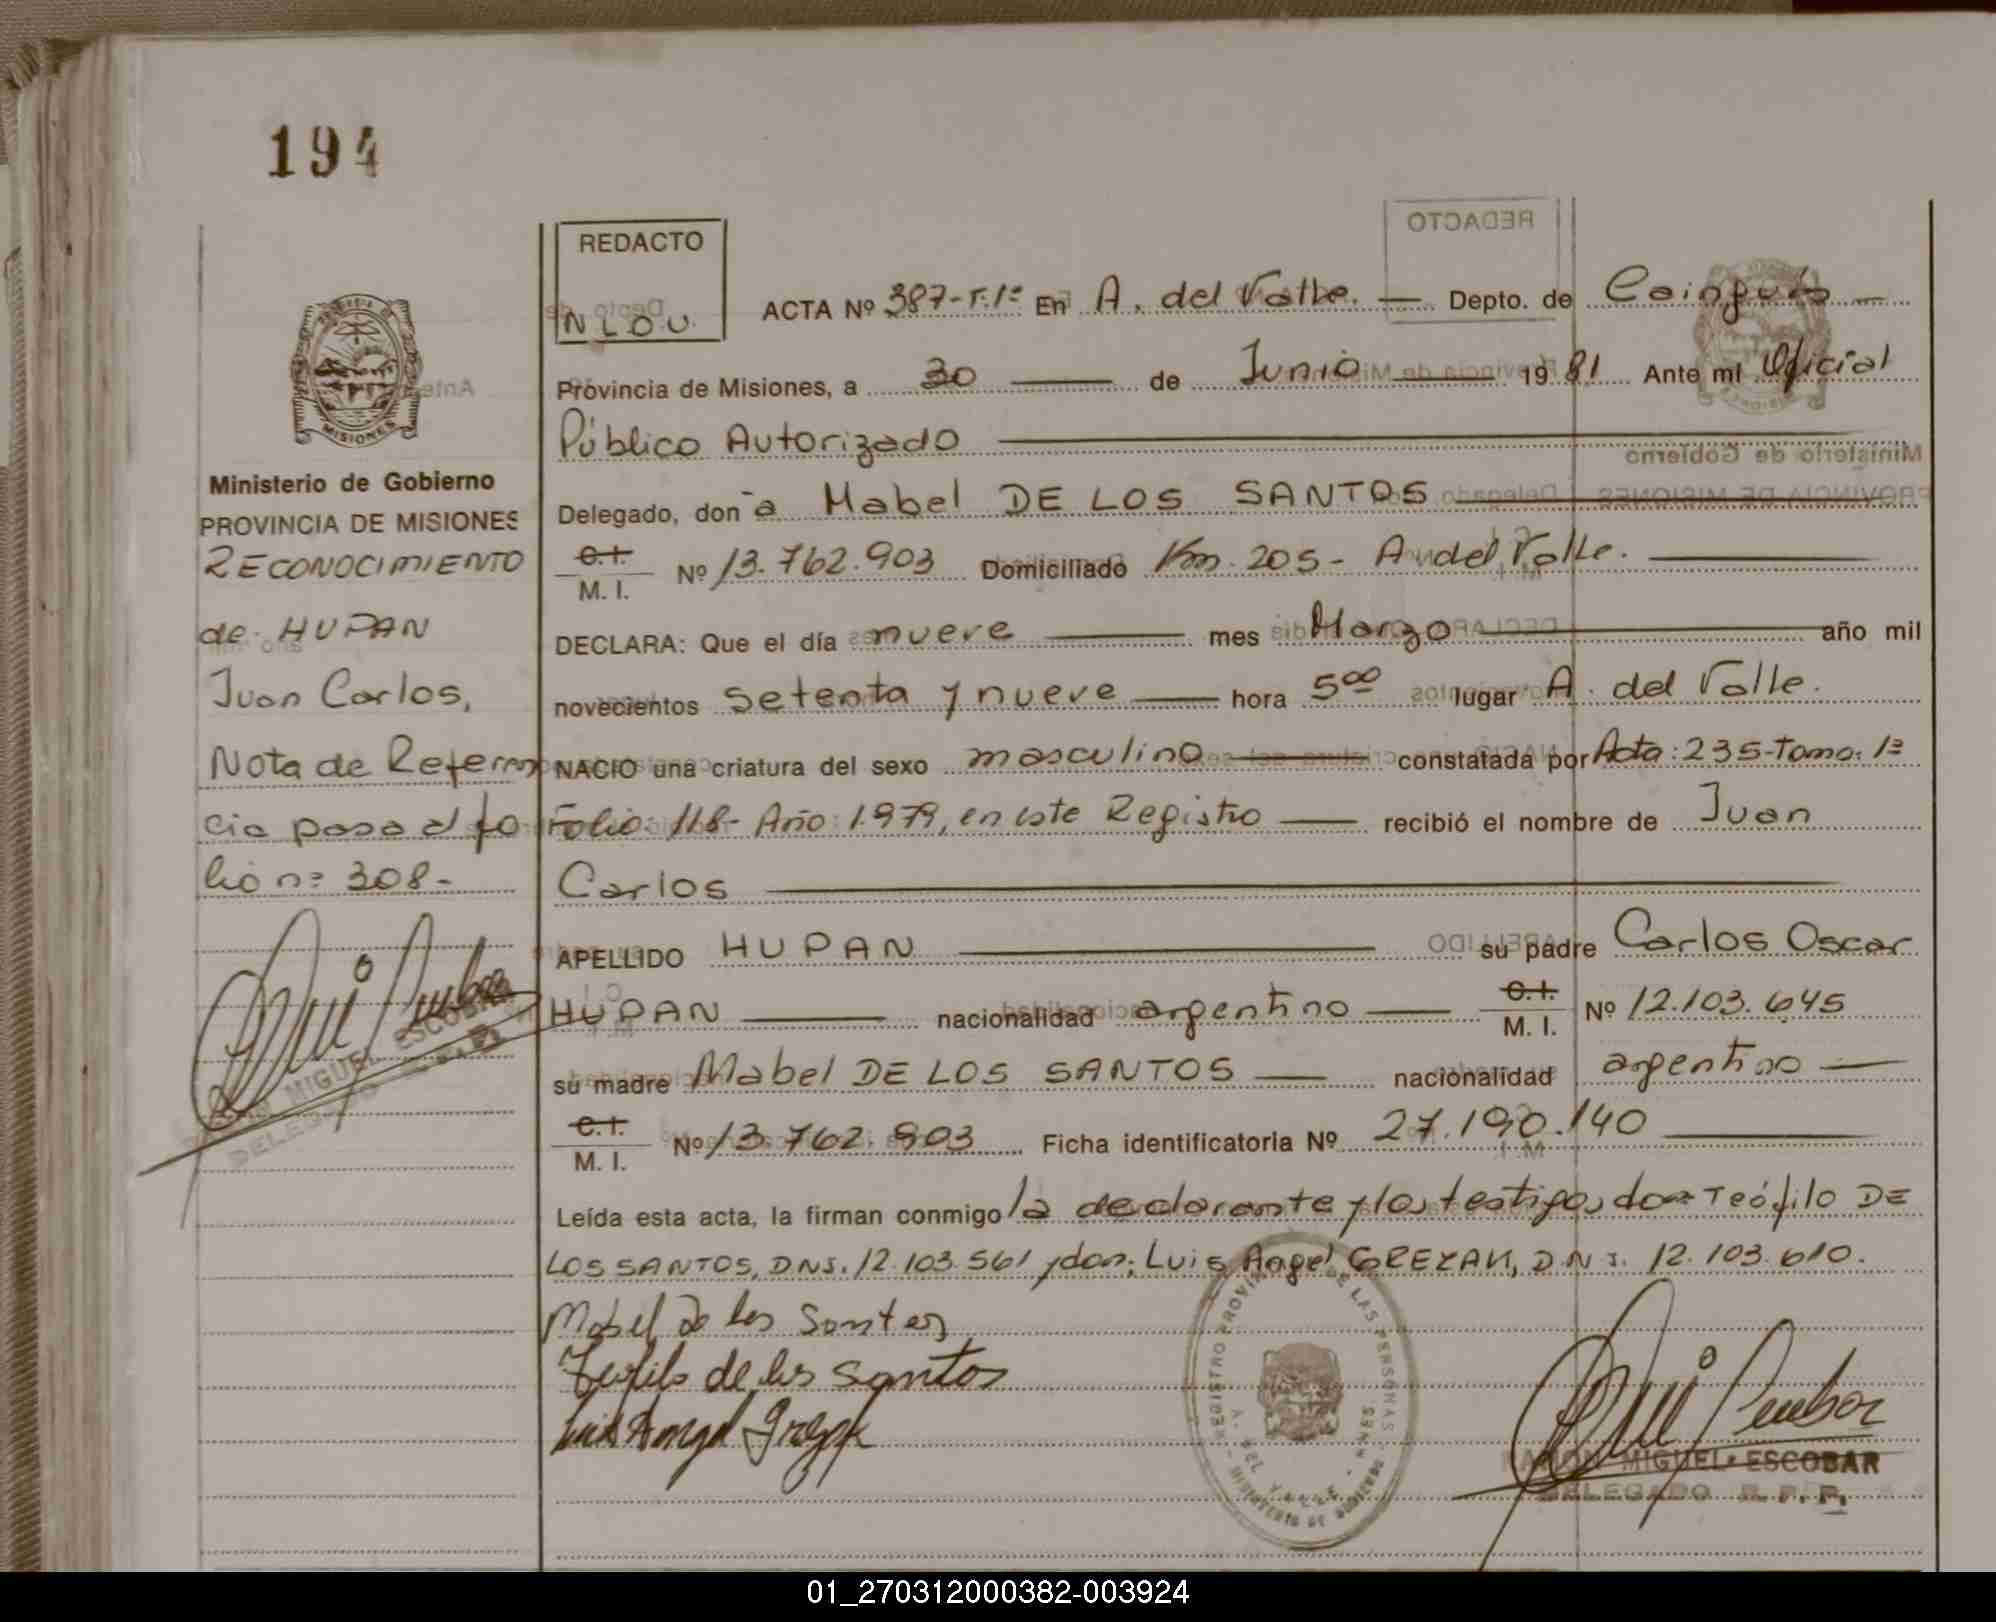 194
REDACTO
NLOU.
ACTA Nº 387-T.1º En A. del Valle. Depto. de Cainguás
Provincia de Misiones, a 30 de Junio 1981 Ante mí Oficial
Público Autorizado
Delegado, don a Mabel DE LOS SANTOS
C.I.
M. I. Nº 13.762.903 Domiciliado Km. 205- A. del Valle.
DECLARA: Que el día nueve mes Marzo año mil
novecientos setenta y nueve hora 5 00 lugar A. del Valle.
NACIO una criatura del sexo masculino constatada por Acta: 235-Tomo: 1º
Folio: 118- Año: 1.979, en este Registro recibió el nombre de Juan
Carlos
APELLIDO HUPAN su padre Carlos Oscar
HUPAN nacionalidad argentino C.I. M. I. Nº 12.103.645
su madre Mabel DE LOS SANTOS nacionalidad argentino
C.I.
M. I. Nº 13.762.903 Ficha identificatoria Nº 27.190.140
Leída esta acta, la firman conmigo la declarante y los testigos don Teófilo DE
LOS SANTOS, DNI. 12.103.561 y don: Luis Angel DNI. 12.103.610.
Mabel De los Santos
Teofilo de los Santos
Luis Angel
MISIONES
Ministerio de Gobierno
PROVINCIA DE MISIONES
RECONOCIMIENTO
de HUPAN
Juan Carlos,
Nota de Referen
cia pasa al fo
lio nº 308-
MIGUEL ESCOBAR
DELEGADO
REGISTRO PROVINCIAL DE LAS PERSONAS
MINISTERIO DE GOBIERNO
RAMON MIGUEL ESCOBAR
DELEGADO R. P. P.
01_270312000382-003924